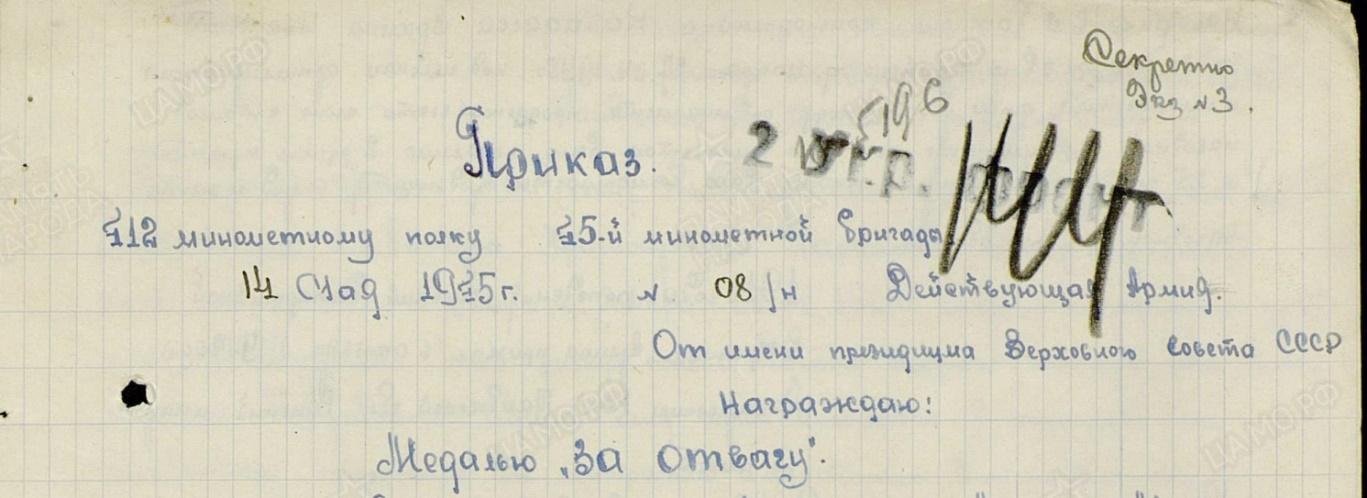 Секретно
Экз №3.
Приказ.
412 минометному полку 45-й минометной бригады
14 Мая 1945г. № 08/н Действующая Армия.
От имени президиума Верховного Совета СССР
Награждаю:
Медалью „За отвагу".